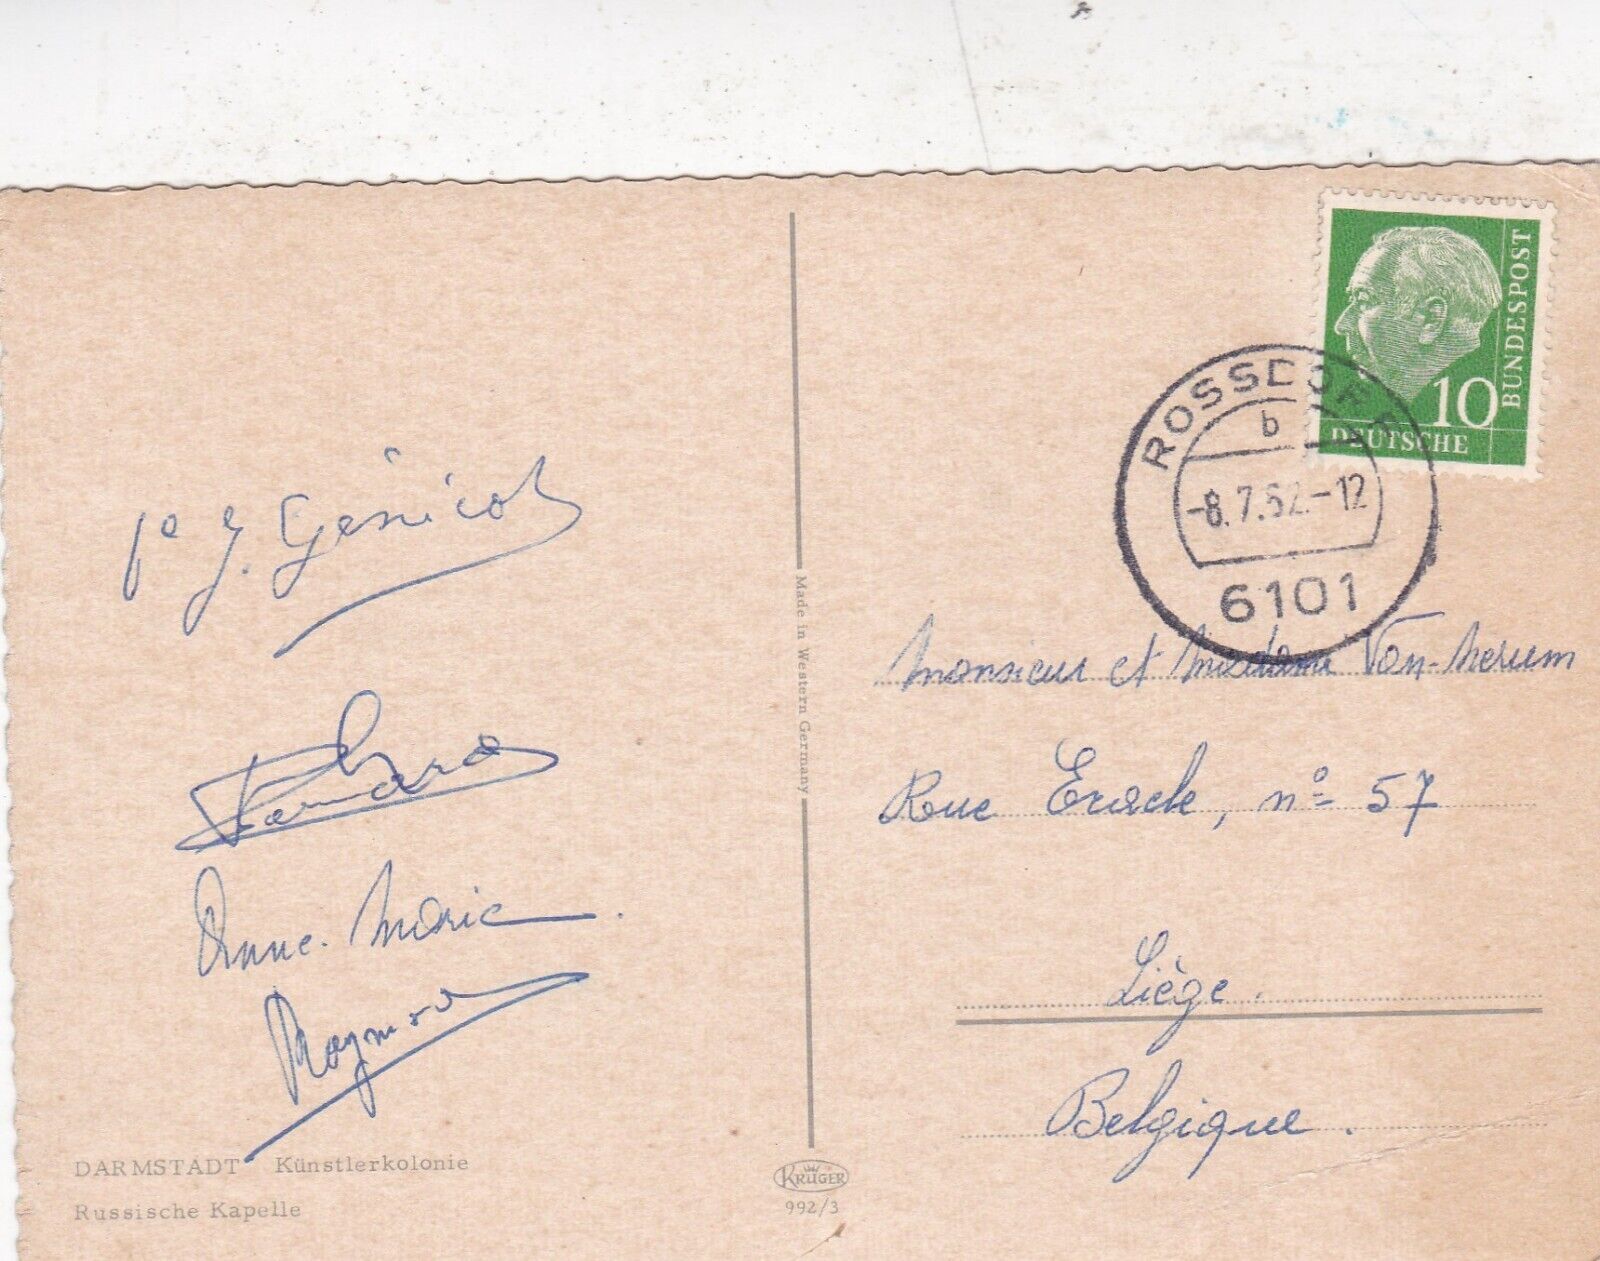 BUNDESPOST
10
DEUTSCHE
ROSSDORF
b
-8.7.62.-12
6101
J. Génicot
Anne. Marie
Raymond
DARMSTADT · Künstlerkolonie
Russische Kapelle
Made in Western Germany
KRÜGER
992/3
Monsieur et Madame
Rue n° 57
Liège.
Belgique.